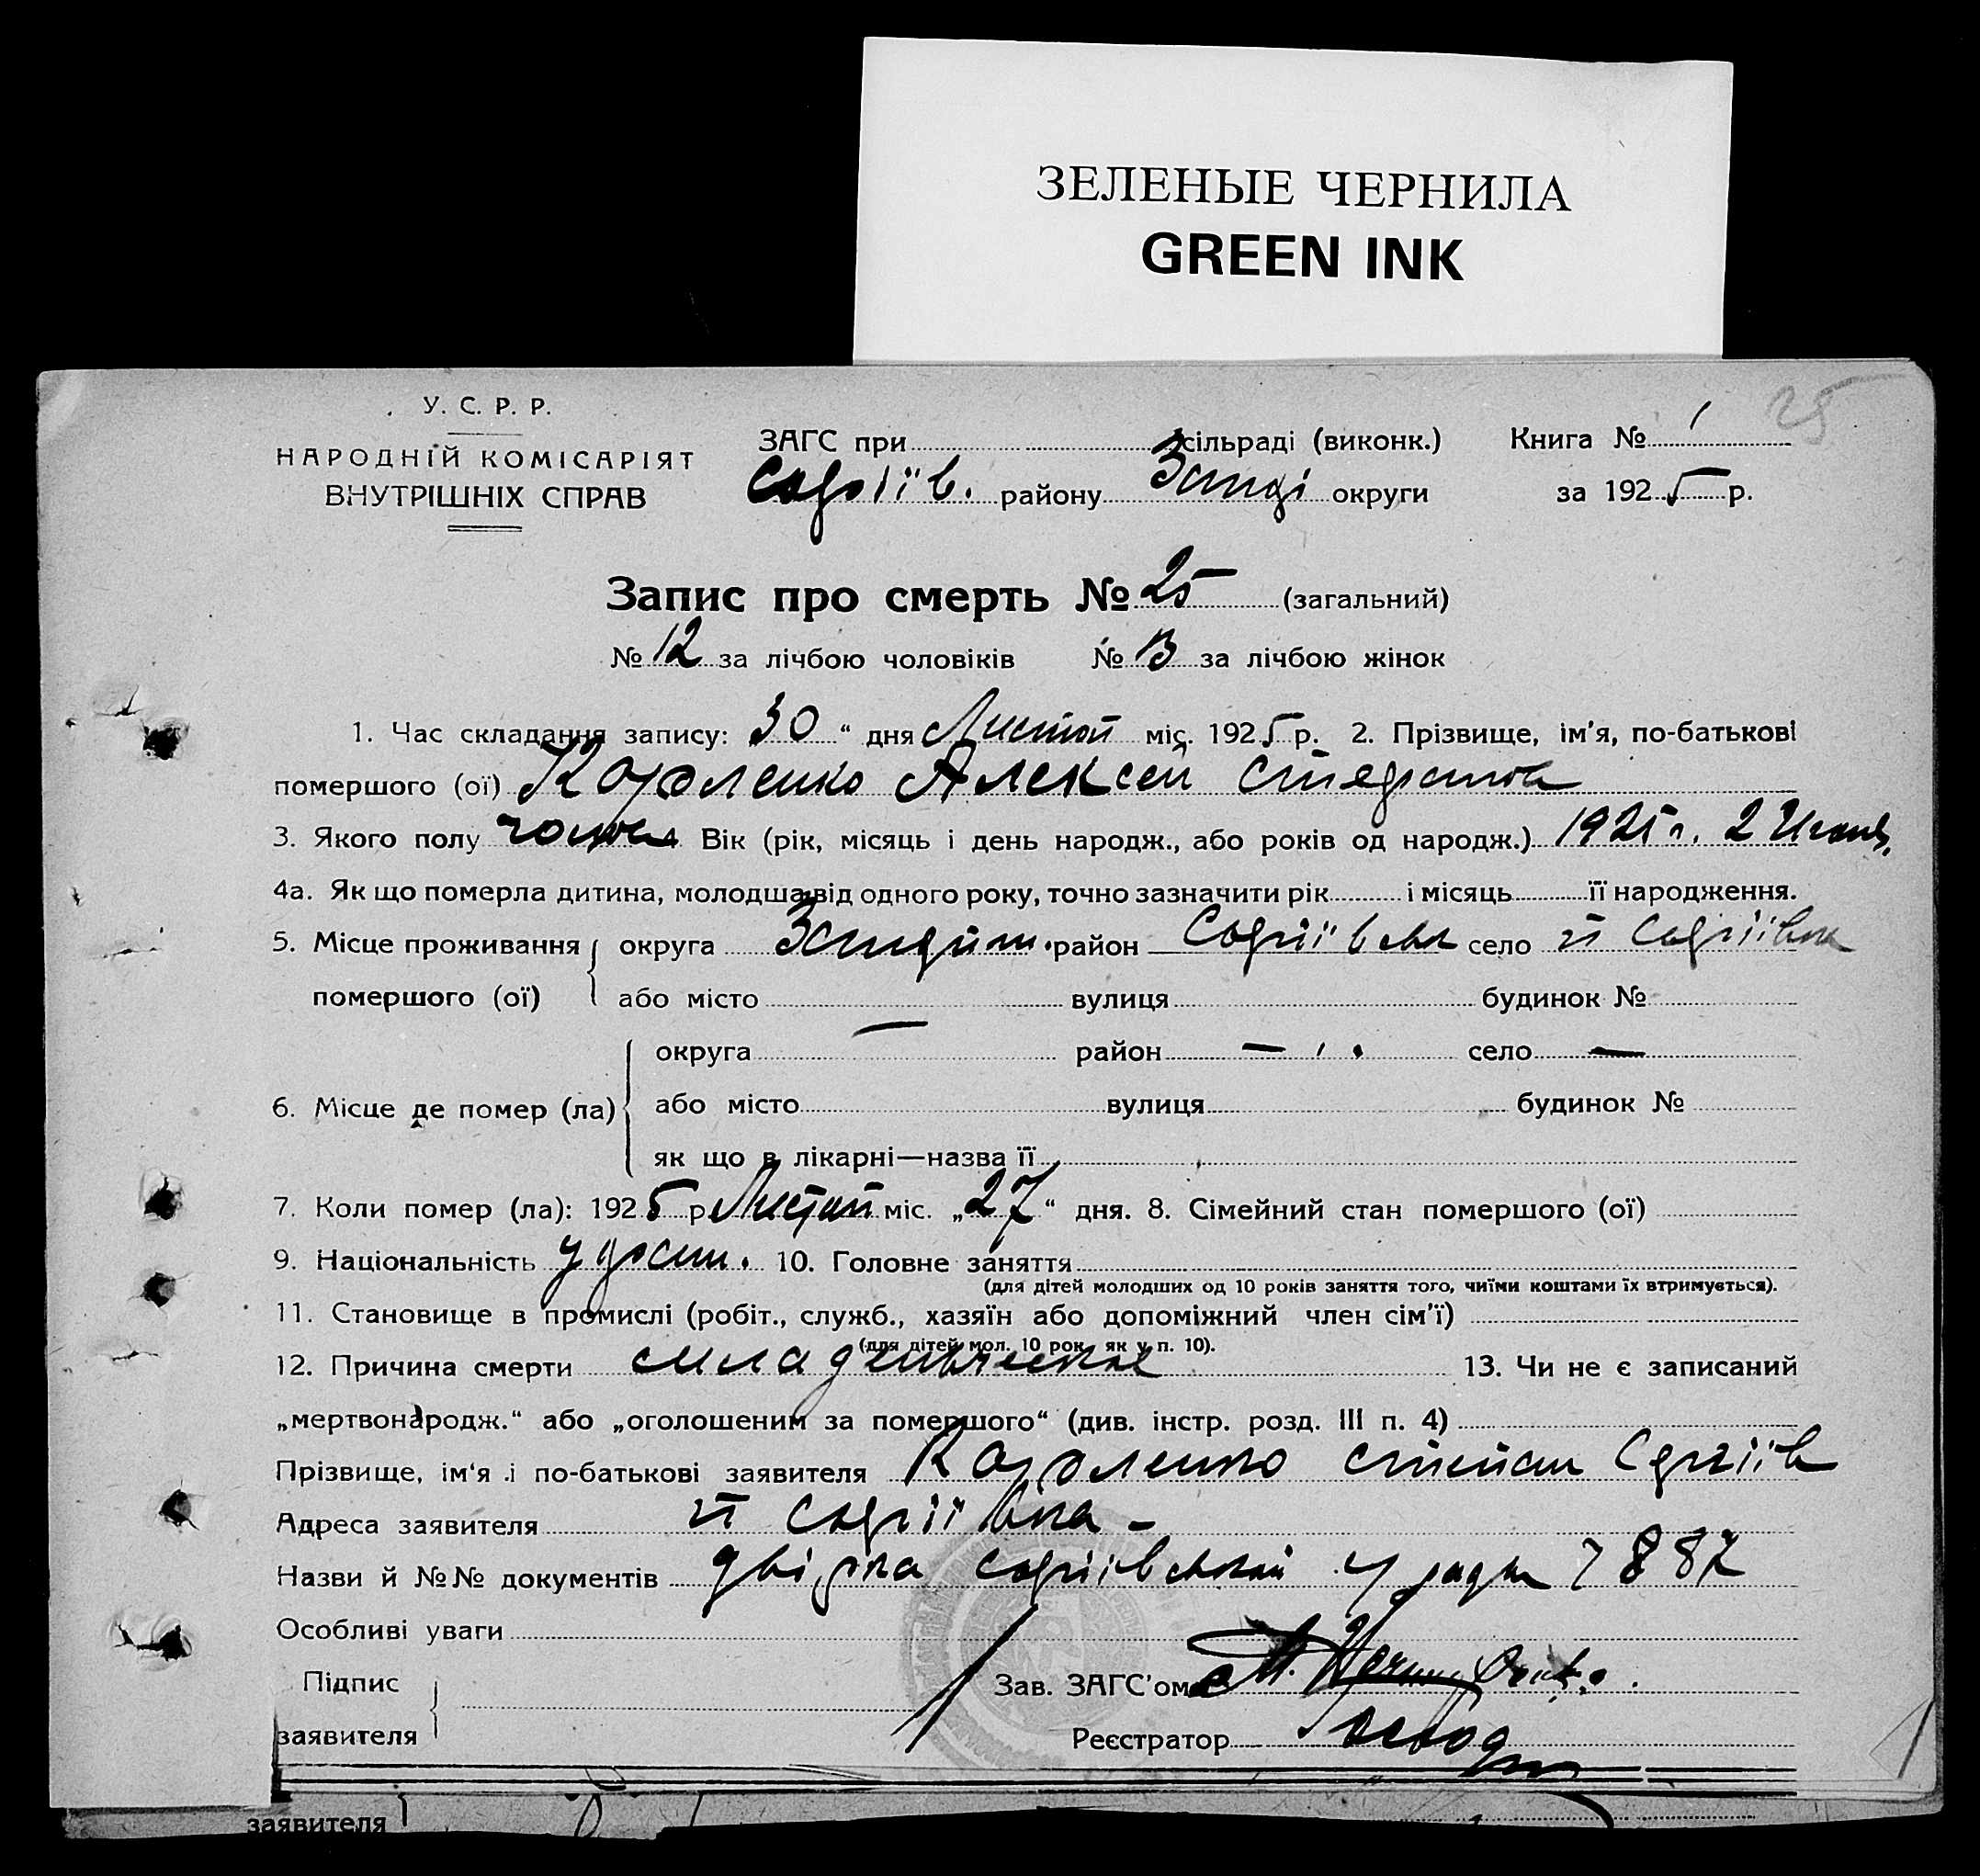 ЗЕЛЕНЫЕ ЧЕРНИЛА
GREEN INK
25
У. С. Р. Р.
НАРОДНІЙ КОМІСАРІЯТ
ВНУТРІШНІХ СПРАВ
ЗАГС при сільраді (виконк.) Книга № 1
Софіїв. району Запорі округи за 1925 р.
Запис про смерть № 25 (загальний)
№ 12 за лічбою чоловіків № 13 за лічбою жінок
1. Час складання запису: 30 " дня Листоп міс. 1925 р. 2. Прізвище, ім'я, по-батькові
помершого (ої) Короленко Алексей
3. Якого полу Вік (рік, місяць і день народж., або років од народж.) 1925 г. 2
4а. Як що померла дитина, молодша від одного року, точно зазначити рік і місяць її народження.
5. Місце проживання округа район село Софіївка
помершого (ої) або місто вулиця будинок №
округа — район — село —
6. Місце де помер (ла) або місто вулиця будинок №
як що в лікарні—назва її
7. Коли помер (ла): 1925 р. Листоп міс. „27" дня. 8. Сімейний стан помершого (ої)
9. Національність україн. 10. Головне заняття
(для дітей молодших од 10 років заняття того, чиїми коштами їх втримується).
11. Становище в промислі (робіт., служб., хазяїн або допоміжний член сім'ї)
(для дітей мол. 10 рок. як у п. 10).
12. Причина смерти младенческая 13. Чи не є записаний
„мертвонародж." або „оголошеним за помершого" (див. інстр. розд. III п. 4)
Прізвище, ім'я і по-батькові заявителя Короленко Степан Сергіїв
Адреса заявителя Софіївка -
Назви й №№ документів довідка Софіївської 7887
Особливі уваги
Підпис Зав. ЗАГС'ом
заявителя Реєстратор
заявителя